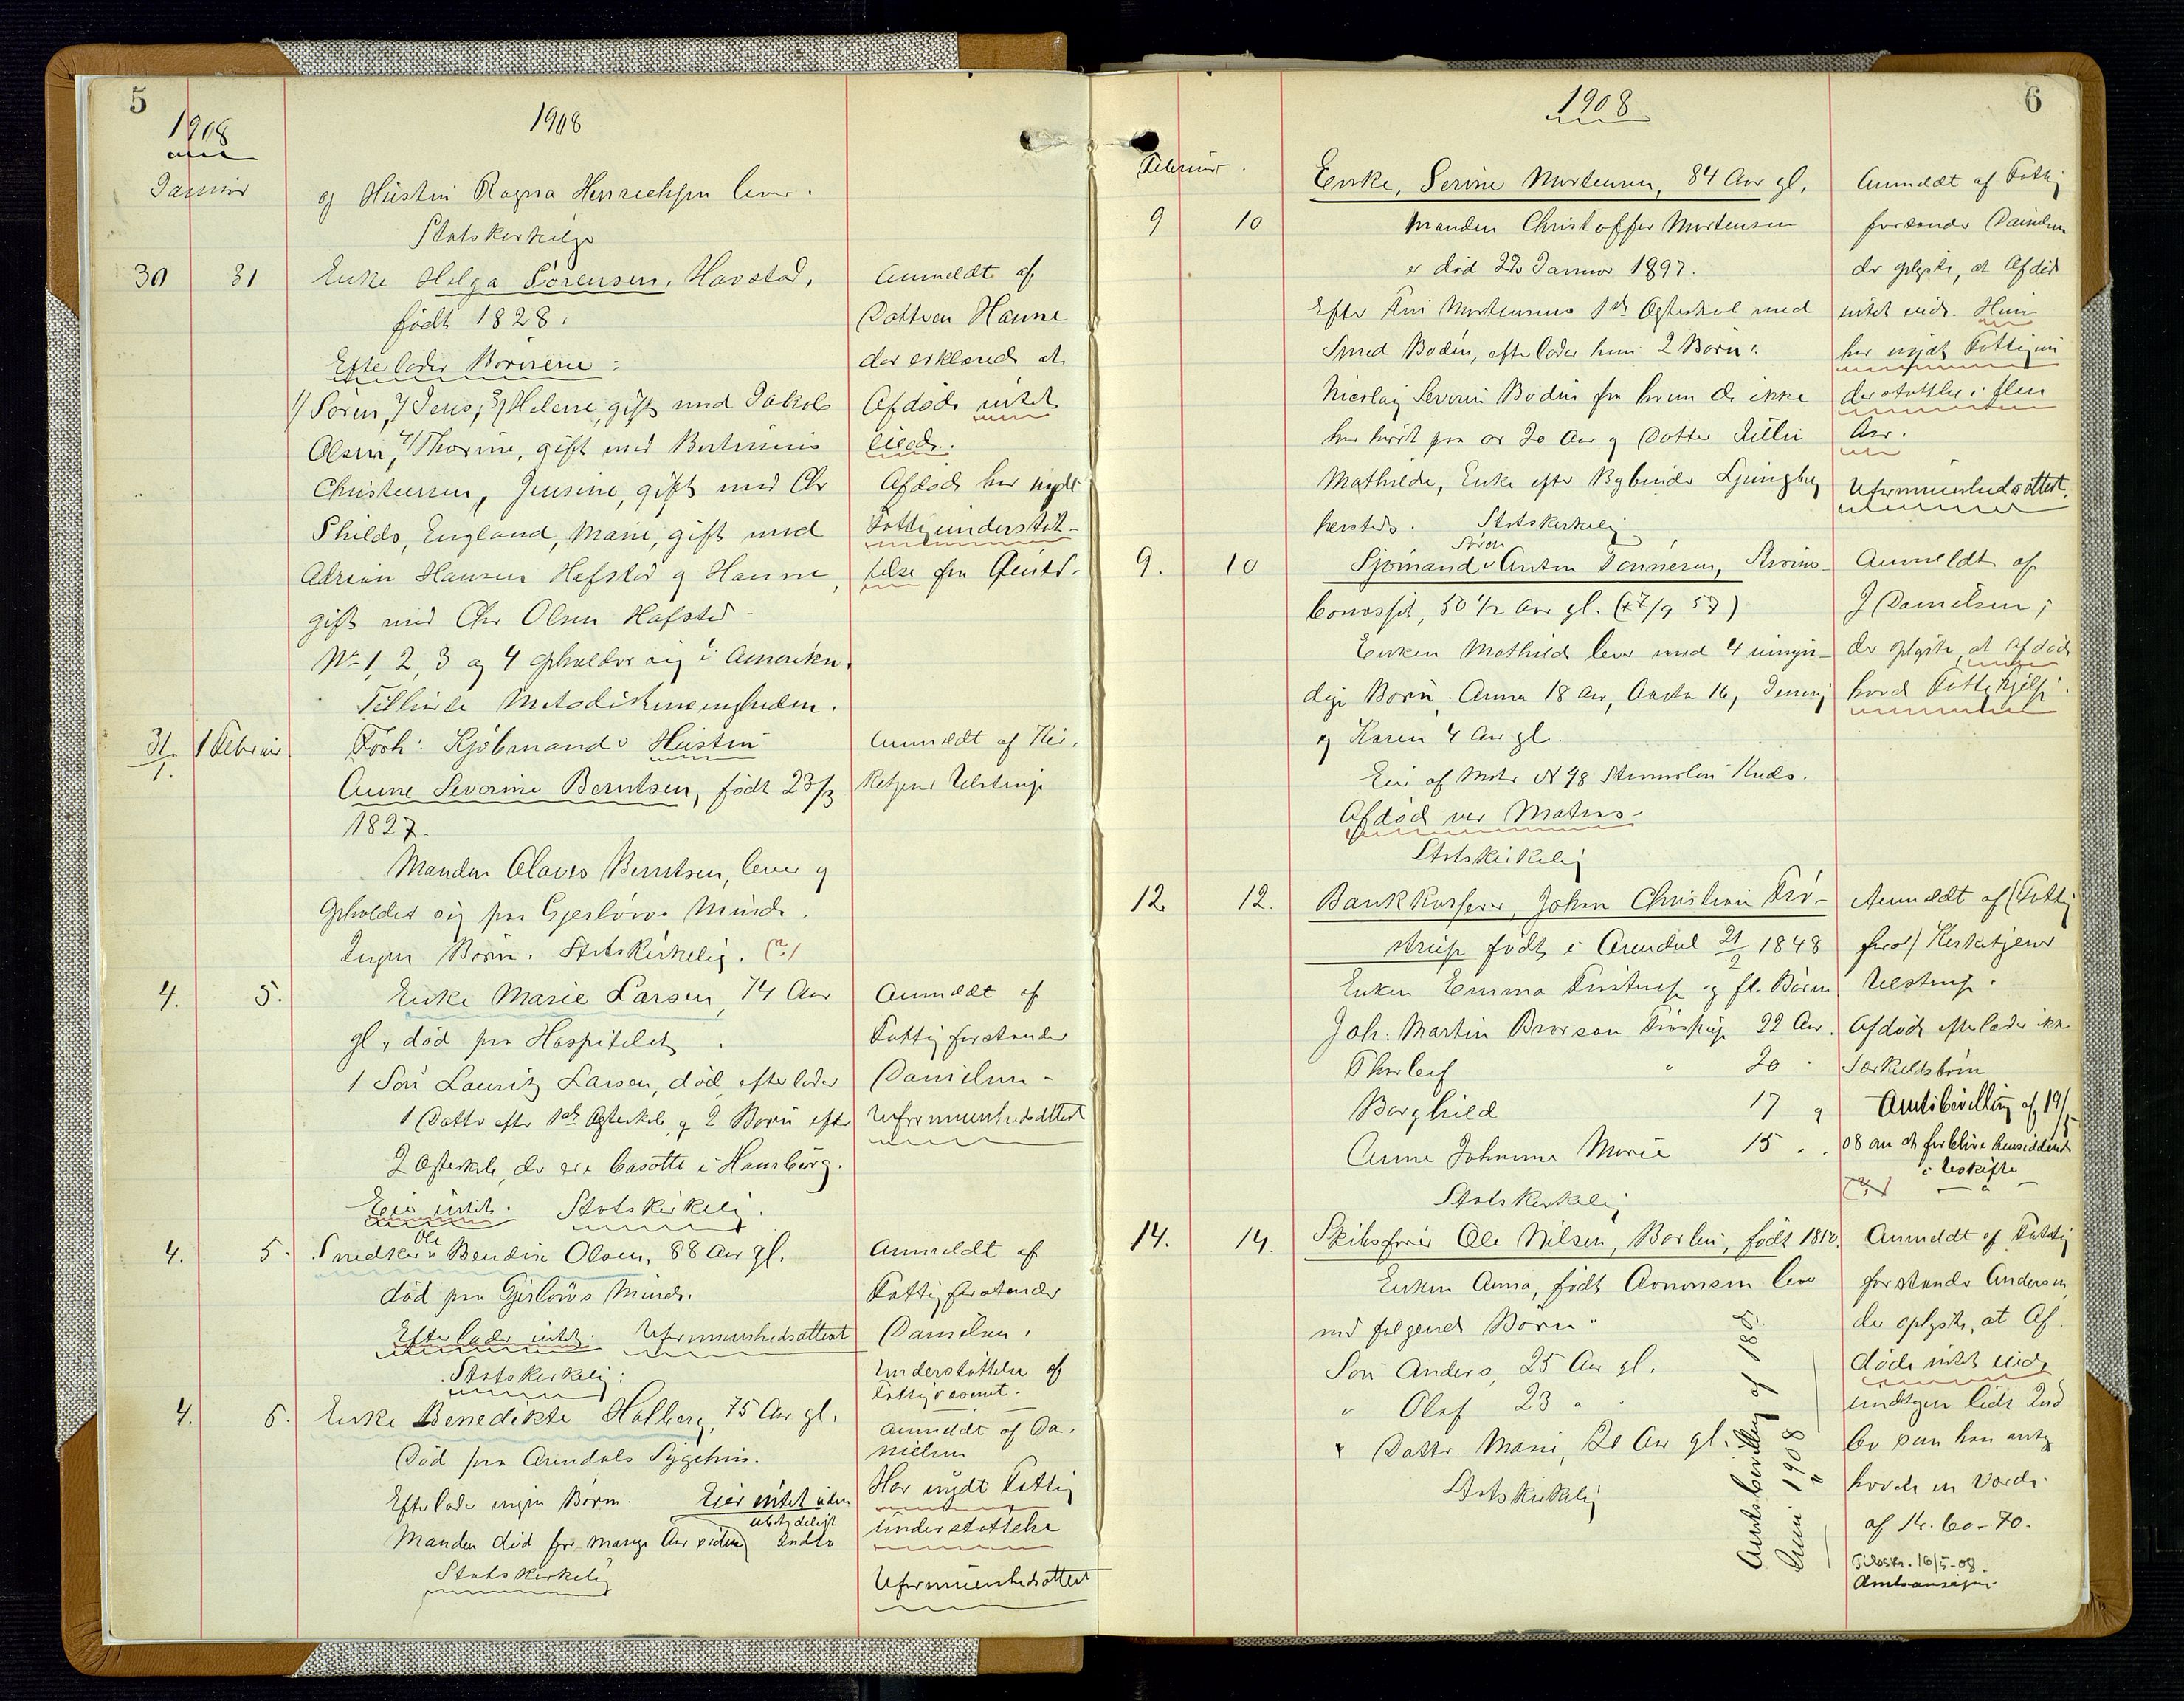 5
1908
1908
Januar
og Hustru Ragna Henrichsen lever.
Statskirkelige
30 31 Enke Helga Sörensen, Havstad,
Anmeldt af
født 1828.
Datteren Hanne
Efterlader Börnene:
der erklærede at
1/ Sören, 2/ Jens, 3/ Helene, gift med Jakob
Afdøde intet
Olsen, 4/ Thorine, gift med Bertinius
eiede.
Christensen, Jensine, gift med Chr
Afdøde har nydt
Shields, England, Marie, gift med
Fattigunderstöt-
Adrian Hansen Hafstad og Hanne,
telse fra
gift med Chr Olsen Hafstad
No 1, 2, 3 og 4 opholder sig i Amerika.
Tilhörte Metodistmenigheden.
31/1. 1 Februar
Forh: Kjöbmands Hustru
Anmeldt af Kir-
Anne Severine Berntsen, født 23/3
ketjener Ulstrup
1827.
Manden Olaves Berntsen, lever og
opholder sig paa Gjerlöws Minde.
Ingen Börn. Statskirkelig. (?)
4. 5. Enke Marie Larsen, 74 Aar
Anmeldt af
gl, död paa Hospitalet
Fattigforstander
1 Sön Lauritz Larsen, död, efterlader
Danielsen
1 Datter efter 1ste Ægteskab, og 2 Börn efter
Uformuenhedsattest
2 Ægteskab, der ere bosatte i Hamburg.
Eier intet. Statskirkelig.
4. 5. Snedker Ole Bendix Olsen, 88 Aar gl.
Anmeldt af
död paa Gjerlöws Minde.
Fattigforstander
Efterlader intet. Uformuenhedsattest
Danielsen.
Statskirkelig.
Understöttelse af
Fattigvæsenet.
4. 5. Enke Benedikte Holberg, 75 Aar gl.
Anmeldt af Da-
nielsen
Död paa Arendals Sygehus.
Efterlader ingen Börn. Eier intet uden
Har nydt Fattig
ubetydeligt
Manden död for mange Aar siden Indbo
understöttelse
Statskirkelig
Uformuenhedsattest
6
1908
Februar.
9 10
Enke, Serine Mortensen, 84 Aar gl.
Anmeldt af Fattig
Manden Christoffer Mortensen
forstander Danielsen
er död 22 Januar 1897.
der oplyste, at Afdöde
Efter Fru Mortensens 1ste Ægteskab med
intet eide. Hun
Smed Bodin, efterlader hun 2 Börn:
har nydt Fattigun
Nicolay Severin Bodin fra hvem de ikke
derstöttelse i flere
har hört paa ca 20 Aar og Datter
Aar.
Mathilde, Enke efter Bybud Ljungberg
Uformuenhedsattest.
hersteds. Statskirkelig
9. 10 Sjömand Sören Anton Tönnesen, Ströms-
Anmeldt af
50 1/2 Aar gl. (27/9 57)
J Danielsen;
Enken Mathilde lever med 4 umyn-
der oplyste, at Afdöde
dige Börn. Anna 18 Aar, 16, Jenny
havde Fattighjælp.
og Karen 4 Aar gl.
Eier af Matr No 98
Afdöde var Matros.
Statskirkelig
12 12. Bankkasserer, Johan Christian Frö-
Anmeldt af (Fattig
strup født i Arendal 21/2 1848
forst) Kirketjener
Enken Emma Fröstrup og fl. Börn
Ulstrup.
Joh. Martin Brorson Fröstrup 22 Aar.
Afdöde efterlader ikke
Thorleif " 20 "
Særkuldsbörn
Borghild 17 "
Amtsbevilling af 19/5
Anne Johanne Marie 15 "
08 om at forblive hensiddende
i Uskifte
(?)
Statskirkelig
14. 14. Skibsförer Ole Nilsen, Barbu, födt
Anmeldt af Fattig
Enken Anna, födt Aanonsen lever
forstander Andersen
med fölgende Börn:
der oplyste, at Af-
Sön Anders, 25 Aar gl.
döde intet eide
" Olaf 23 "
undtagen lidt Ind
" Datter Marie, 20 Aar gl.
bo som han antog
Statskirkelig
havde en Værdi
af Kr. 60-70.
Tilsskr. 16/5-08.
Amtsbevilling af 18/5
1908